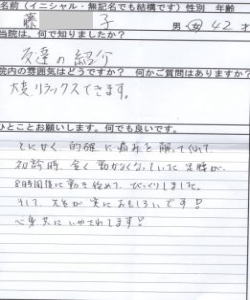 名前（イニシャル・無記名でも結構です）性別 年齢
藤 子 男 女 42 才
当院は、何で知りましたか？
友達の紹介
院内の雰囲気はどうですか？ 何かご質問はありますか？
大変リラックスできます。
ひとことお願いします。何でも良いです。
とにかく、的確に痛みを解ってくれて、
初診時、全く動かなくなっていた足腰が、
8時間後に動き始めて、びっくりしました。
そして、先生が実におもしろいです！
心身共にいやされてます！